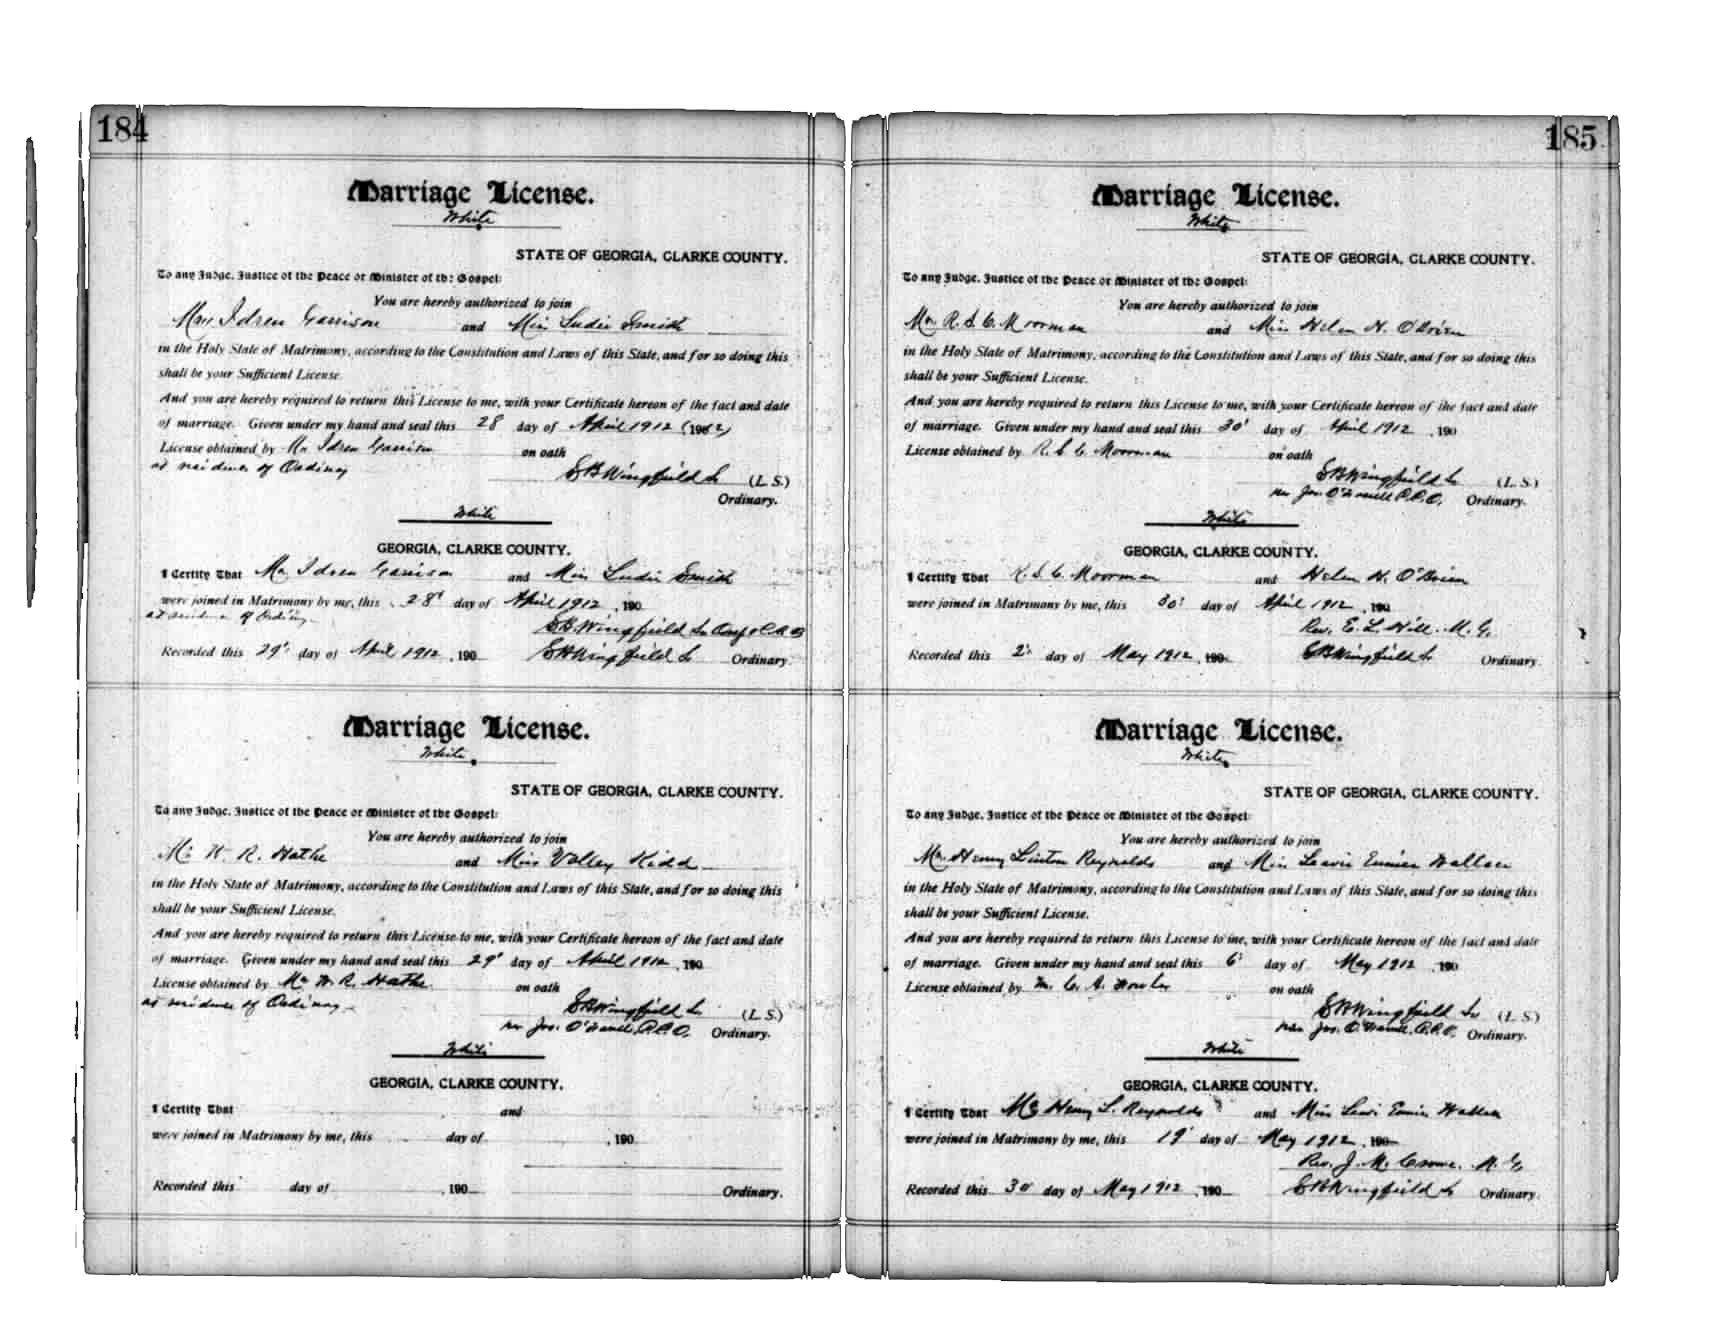 184
Marriage License.
White
STATE OF GEORGIA, CLARKE COUNTY.
To any Judge, Justice of the Peace or Minister of the Gospel:
You are hereby authorized to join
Mr Idren Garrison and Miss Ludie Smith
in the Holy State of Matrimony, according to the Constitution and Laws of this State, and for so doing this
shall be your Sufficient License.
And you are hereby required to return this License to me, with your Certificate hereon of the fact and date
of marriage. Given under my hand and seal this 28 day of April 1912 (1912)
License obtained by Mr Idren Garrison on oath
at residence of Ordinary
S B Wingfield (L. S.)
Ordinary.
White
GEORGIA, CLARKE COUNTY.
I Certify That Mr Idren Garrison and Miss Ludie Smith
were joined in Matrimony by me, this 28' day of April 1912, 190
at residence of Ordinary
S B Wingfield
Recorded this 29' day of April 1912, 190 S B Wingfield Ordinary.
Marriage License.
White
STATE OF GEORGIA, CLARKE COUNTY.
To any Judge, Justice of the Peace or Minister of the Gospel:
You are hereby authorized to join
Mr W. R. Hathe and Miss Valley Kidd
in the Holy State of Matrimony, according to the Constitution and Laws of this State, and for so doing this
shall be your Sufficient License.
And you are hereby required to return this License to me, with your Certificate hereon of the fact and date
of marriage. Given under my hand and seal this 29' day of April 1912, 190
License obtained by Mr W. R. Hathe on oath
at residence of Ordinary
S B Wingfield (L. S.)
per Jos. O'Farrell, Ordinary.
White
GEORGIA, CLARKE COUNTY.
I Certify That and
were joined in Matrimony by me, this day of , 190
Recorded this day of , 190 Ordinary.
185
Marriage License.
White
STATE OF GEORGIA, CLARKE COUNTY.
To any Judge, Justice of the Peace or Minister of the Gospel:
You are hereby authorized to join
Mr. R. S. C. Moorman and Miss Helen H. O'Brien
in the Holy State of Matrimony, according to the Constitution and Laws of this State, and for so doing this
shall be your Sufficient License.
And you are hereby required to return this License to me, with your Certificate hereon of the fact and date
of marriage. Given under my hand and seal this 30' day of April 1912, 190
License obtained by R. S. C. Moorman on oath
S B Wingfield (L. S.)
per Jos. O'Farrell Ordinary.
White
GEORGIA, CLARKE COUNTY.
I Certify That R. S. C. Moorman and Helen H. O'Brien
were joined in Matrimony by me, this 30' day of April 1912, 190
Rev. E. L. Hill. M. G.
Recorded this 2' day of May 1912, 190 S B Wingfield Ordinary.
Marriage License.
White
STATE OF GEORGIA, CLARKE COUNTY.
To any Judge, Justice of the Peace or Minister of the Gospel:
You are hereby authorized to join
Mr. Henry Linton Reynolds and Miss Eunice Wallace
in the Holy State of Matrimony, according to the Constitution and Laws of this State, and for so doing this
shall be your Sufficient License.
And you are hereby required to return this License to me, with your Certificate hereon of the fact and date
of marriage. Given under my hand and seal this 6' day of May 1912, 190
License obtained by C. A. on oath
S B Wingfield (L. S.)
per Jos. O'Farrell, Ordinary.
White
GEORGIA, CLARKE COUNTY.
I Certify That Mr Henry L. Reynolds and Miss Eunice Wallace
were joined in Matrimony by me, this 19' day of May 1912, 190
Rev. J. M. Crowe. M. G.
Recorded this 30' day of May 1912, 190 S B Wingfield Ordinary.